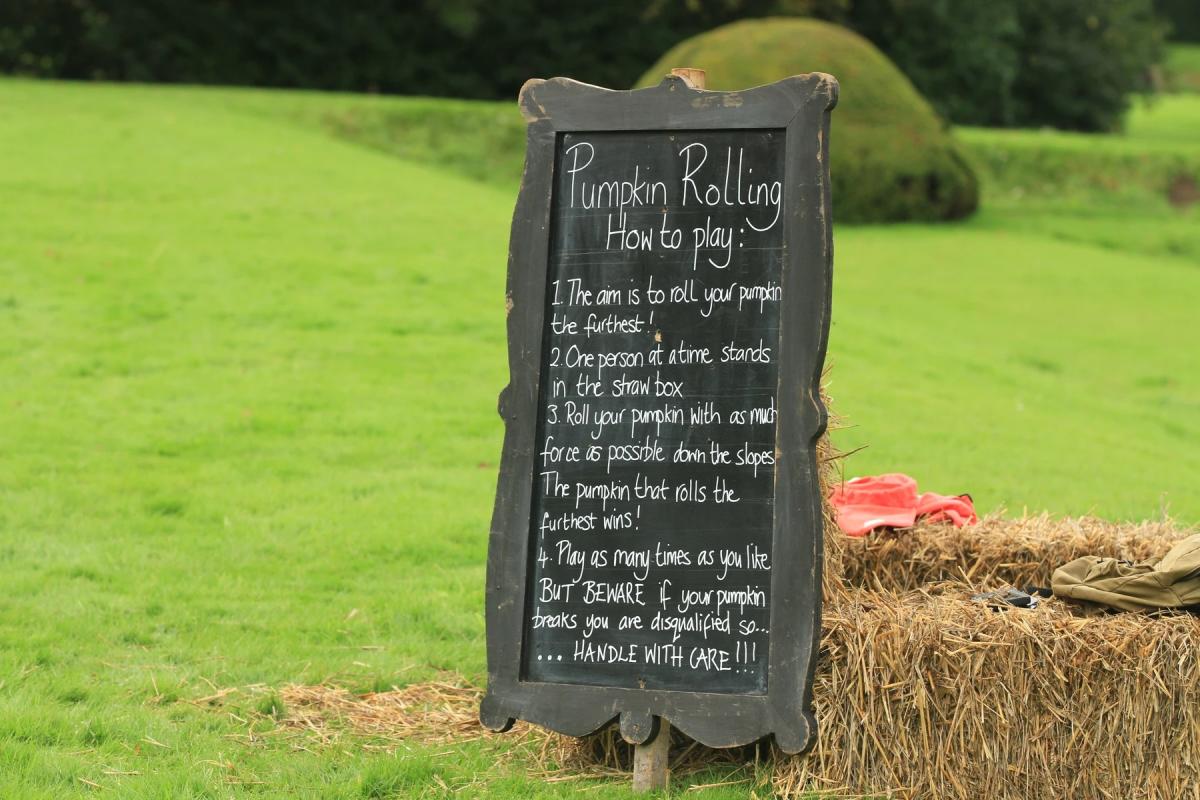 Pumpkin Rolling
How to play:
1. The aim is to roll your pumpkin
the furthest!
2. One person at a time stands
in the straw box
3. Roll your pumpkin with as much
force as possible down the slopes
The pumpkin that rolls the
furthest wins!
4. Play as many times as you like
BUT BEWARE if your pumpkin
breaks you are disqualified so...
... HANDLE WITH CARE!!!